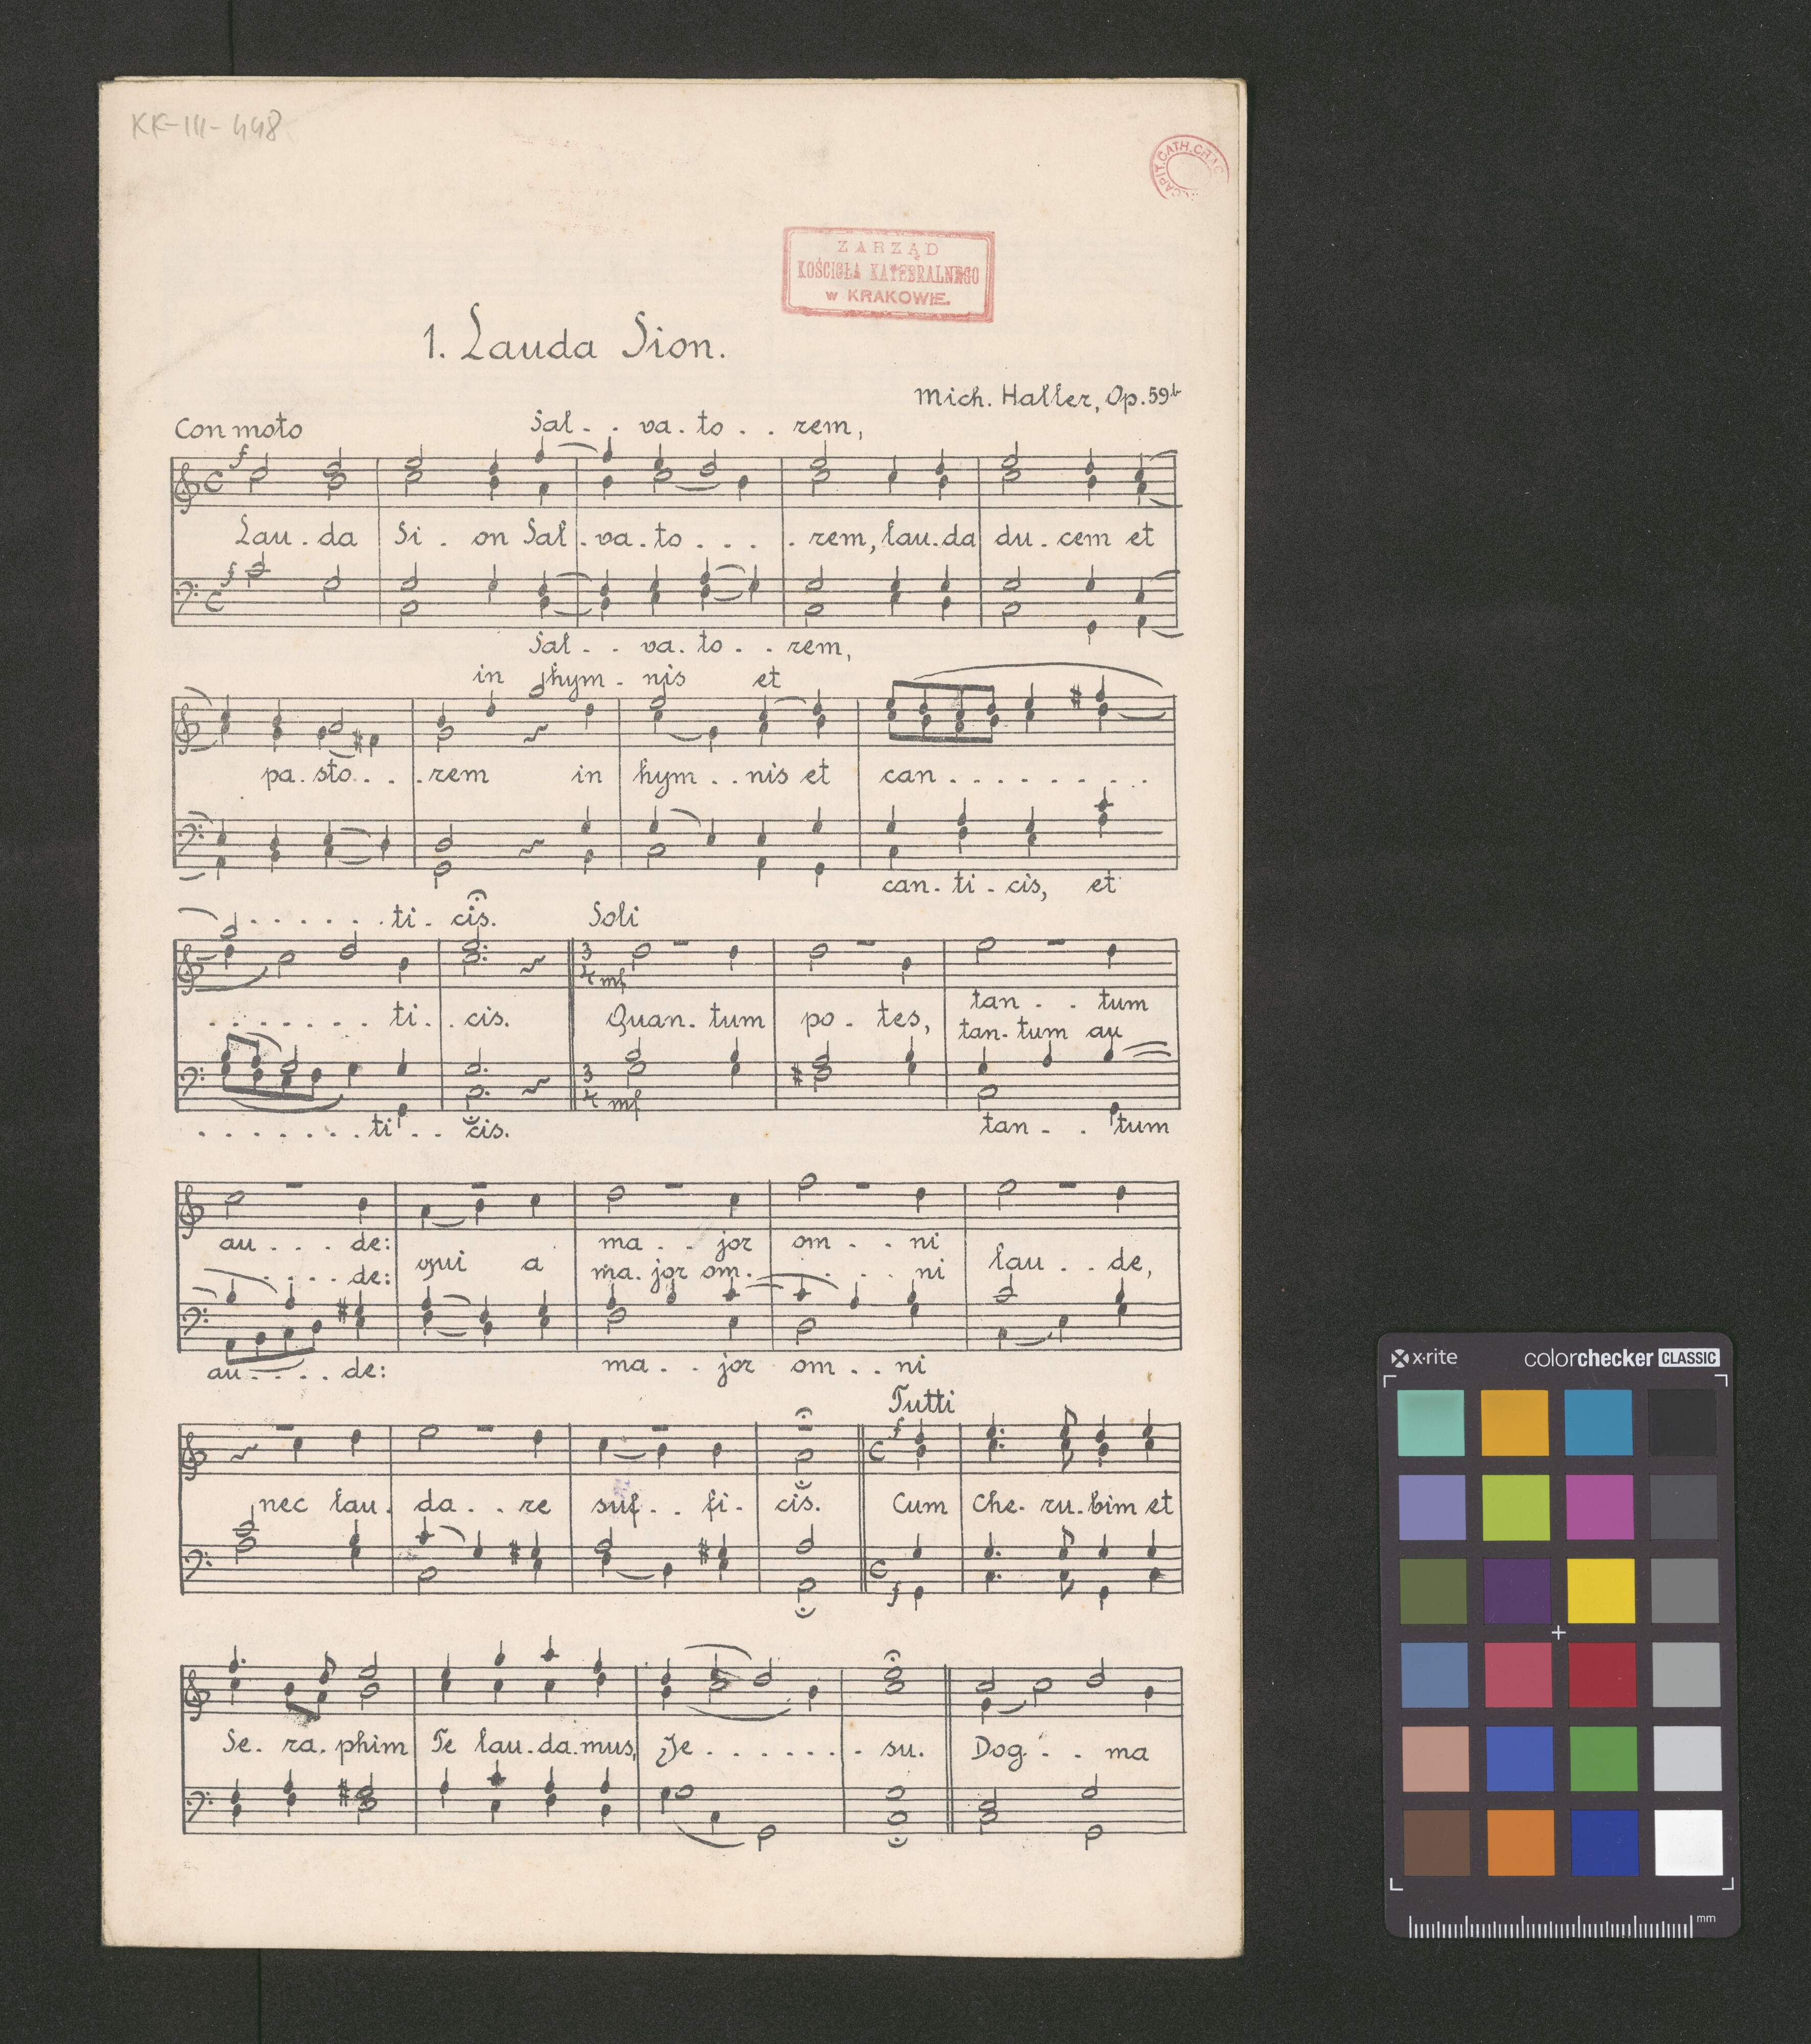 KK-III-448
CAPIT. CATH. CRAC.
ZARZĄD
KOŚCIOŁA KATEDRALNEGO
w KRAKOWIE.
1. Lauda Sion.
Mich. Haller, Op. 59b
Con moto
Sal - . va . to . . rem,
f
Lau . da Si . on Sal . va . to . . . . rem, lau . da du . cem et
f
Sal - . va . to . . rem,
in hym - nis et
pa . sto . . . rem in hym . . nis et can . . . . . . . .
can - ti - cis, et
. . . . . . ti - cis. Soli
3 4 mf
tan - . tum
. . . . . . . ti . . cis. Quan - tum po - tes, tan - tum au
3 4 mf
. . . . . . . ti . . cis. tan - . tum
au . . . de: ma . . jor om . . ni
qui a lau . . de,
. . . . de: ma . jor om . . . . ni
au . . . . de: ma . . jor om . . ni
Tutti
f
nec lau . da . . re suf . . fi - cis. Cum Che - ru . bim et
f
Se . ra . phim Te lau . da . mus, Je . . . . . . . su. Dog . . ma
x·rite colorchecker CLASSIC
mm